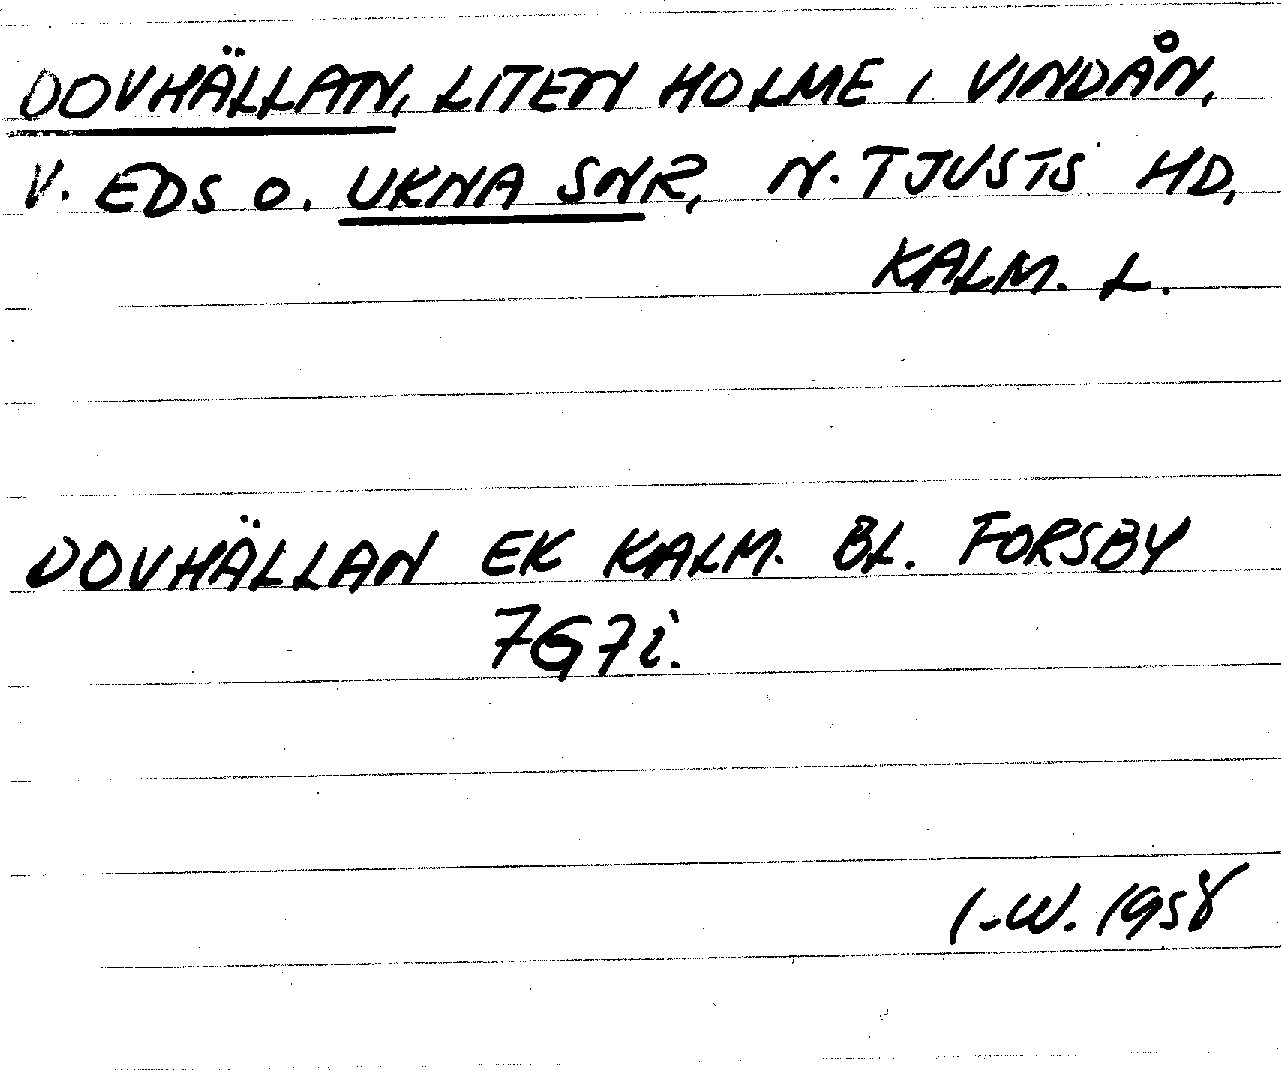 DOVHÄLLAN, LITEN HOLME I VINDÅN,
V. EDS O. UKNA SNR, N. TJUSTS HD,
KALM. L.
DOVHÄLLAN EK KALM. BL. FORSBY
7G7i.
I-W. 1958